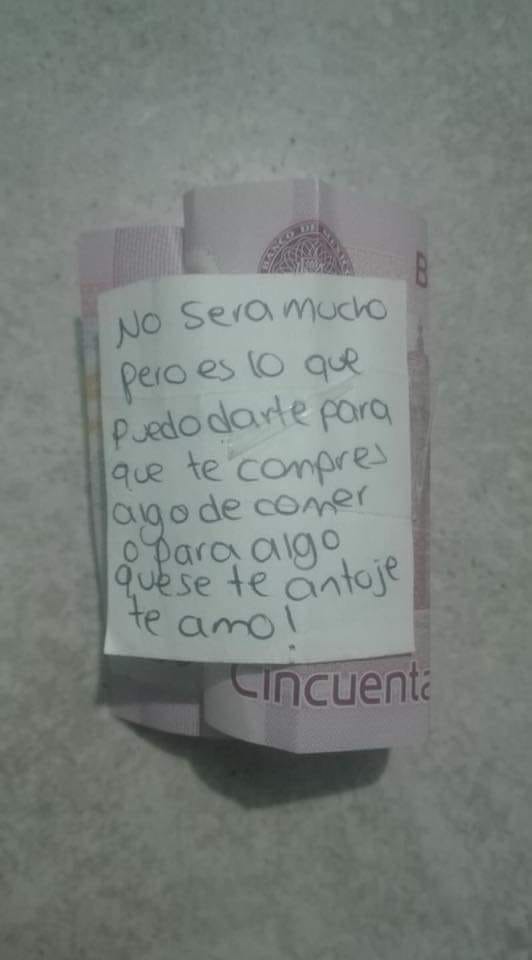 BANCO DE MÉXICO
B
No sera mucho
pero es lo que
puedo darte para
que te compres
algo de comer
o para algo
que se te antoje
te amo!
Cincuenta